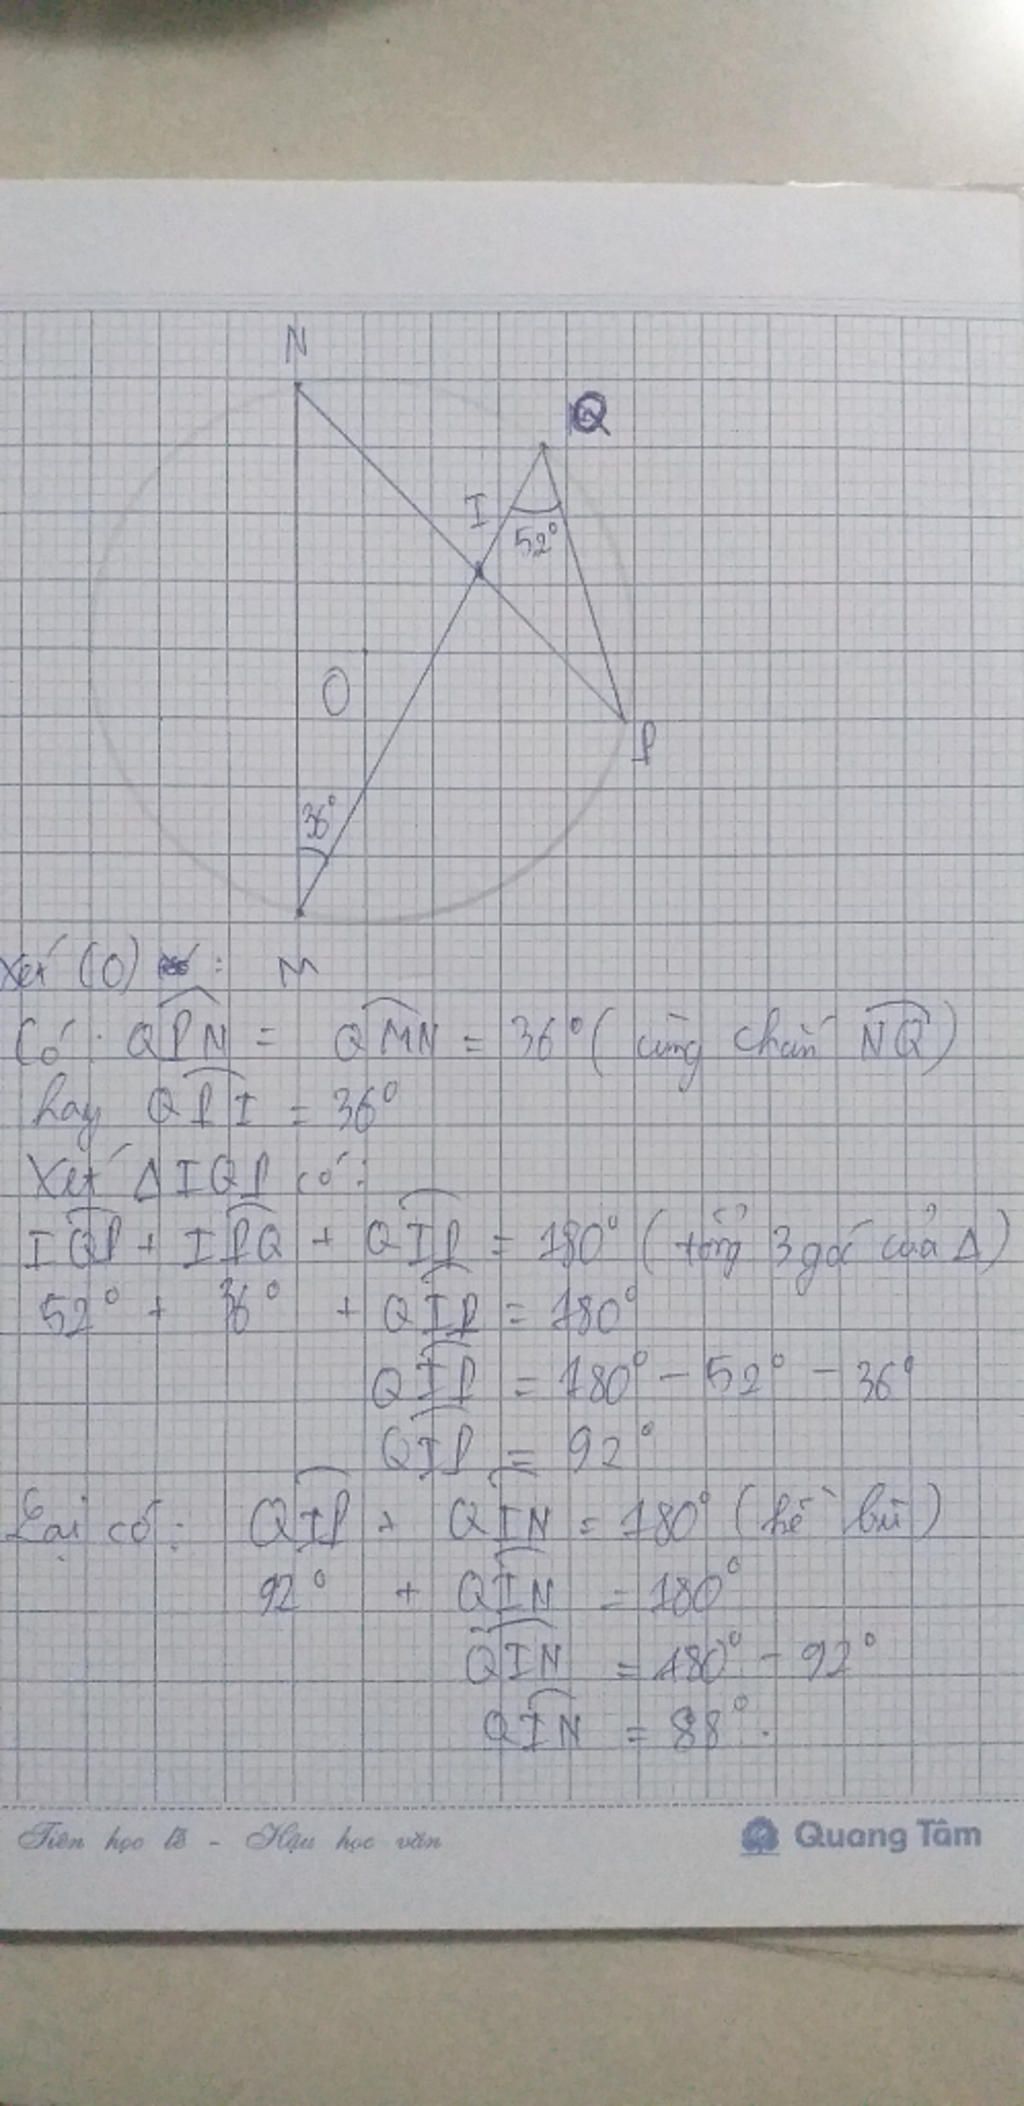 N
Q
I
52°
O
P
36°
Xét (O) :
M
Có: QPN = QMN = 36° (cùng chắn NQ)
hay QPI = 36°
Xét Δ IQP có:
IQP + IPQ + QIP = 180° (tổng 3 góc của Δ)
52° + 36° + QIP = 180°
QIP = 180° - 52° - 36°
QIP = 92°
Lại có: QIP + QIN = 180° (kề bù)
92° + QIN = 180°
QIN = 180° - 92°
QIN = 88°.
Tiên học lễ - Hậu học văn
Quang Tâm